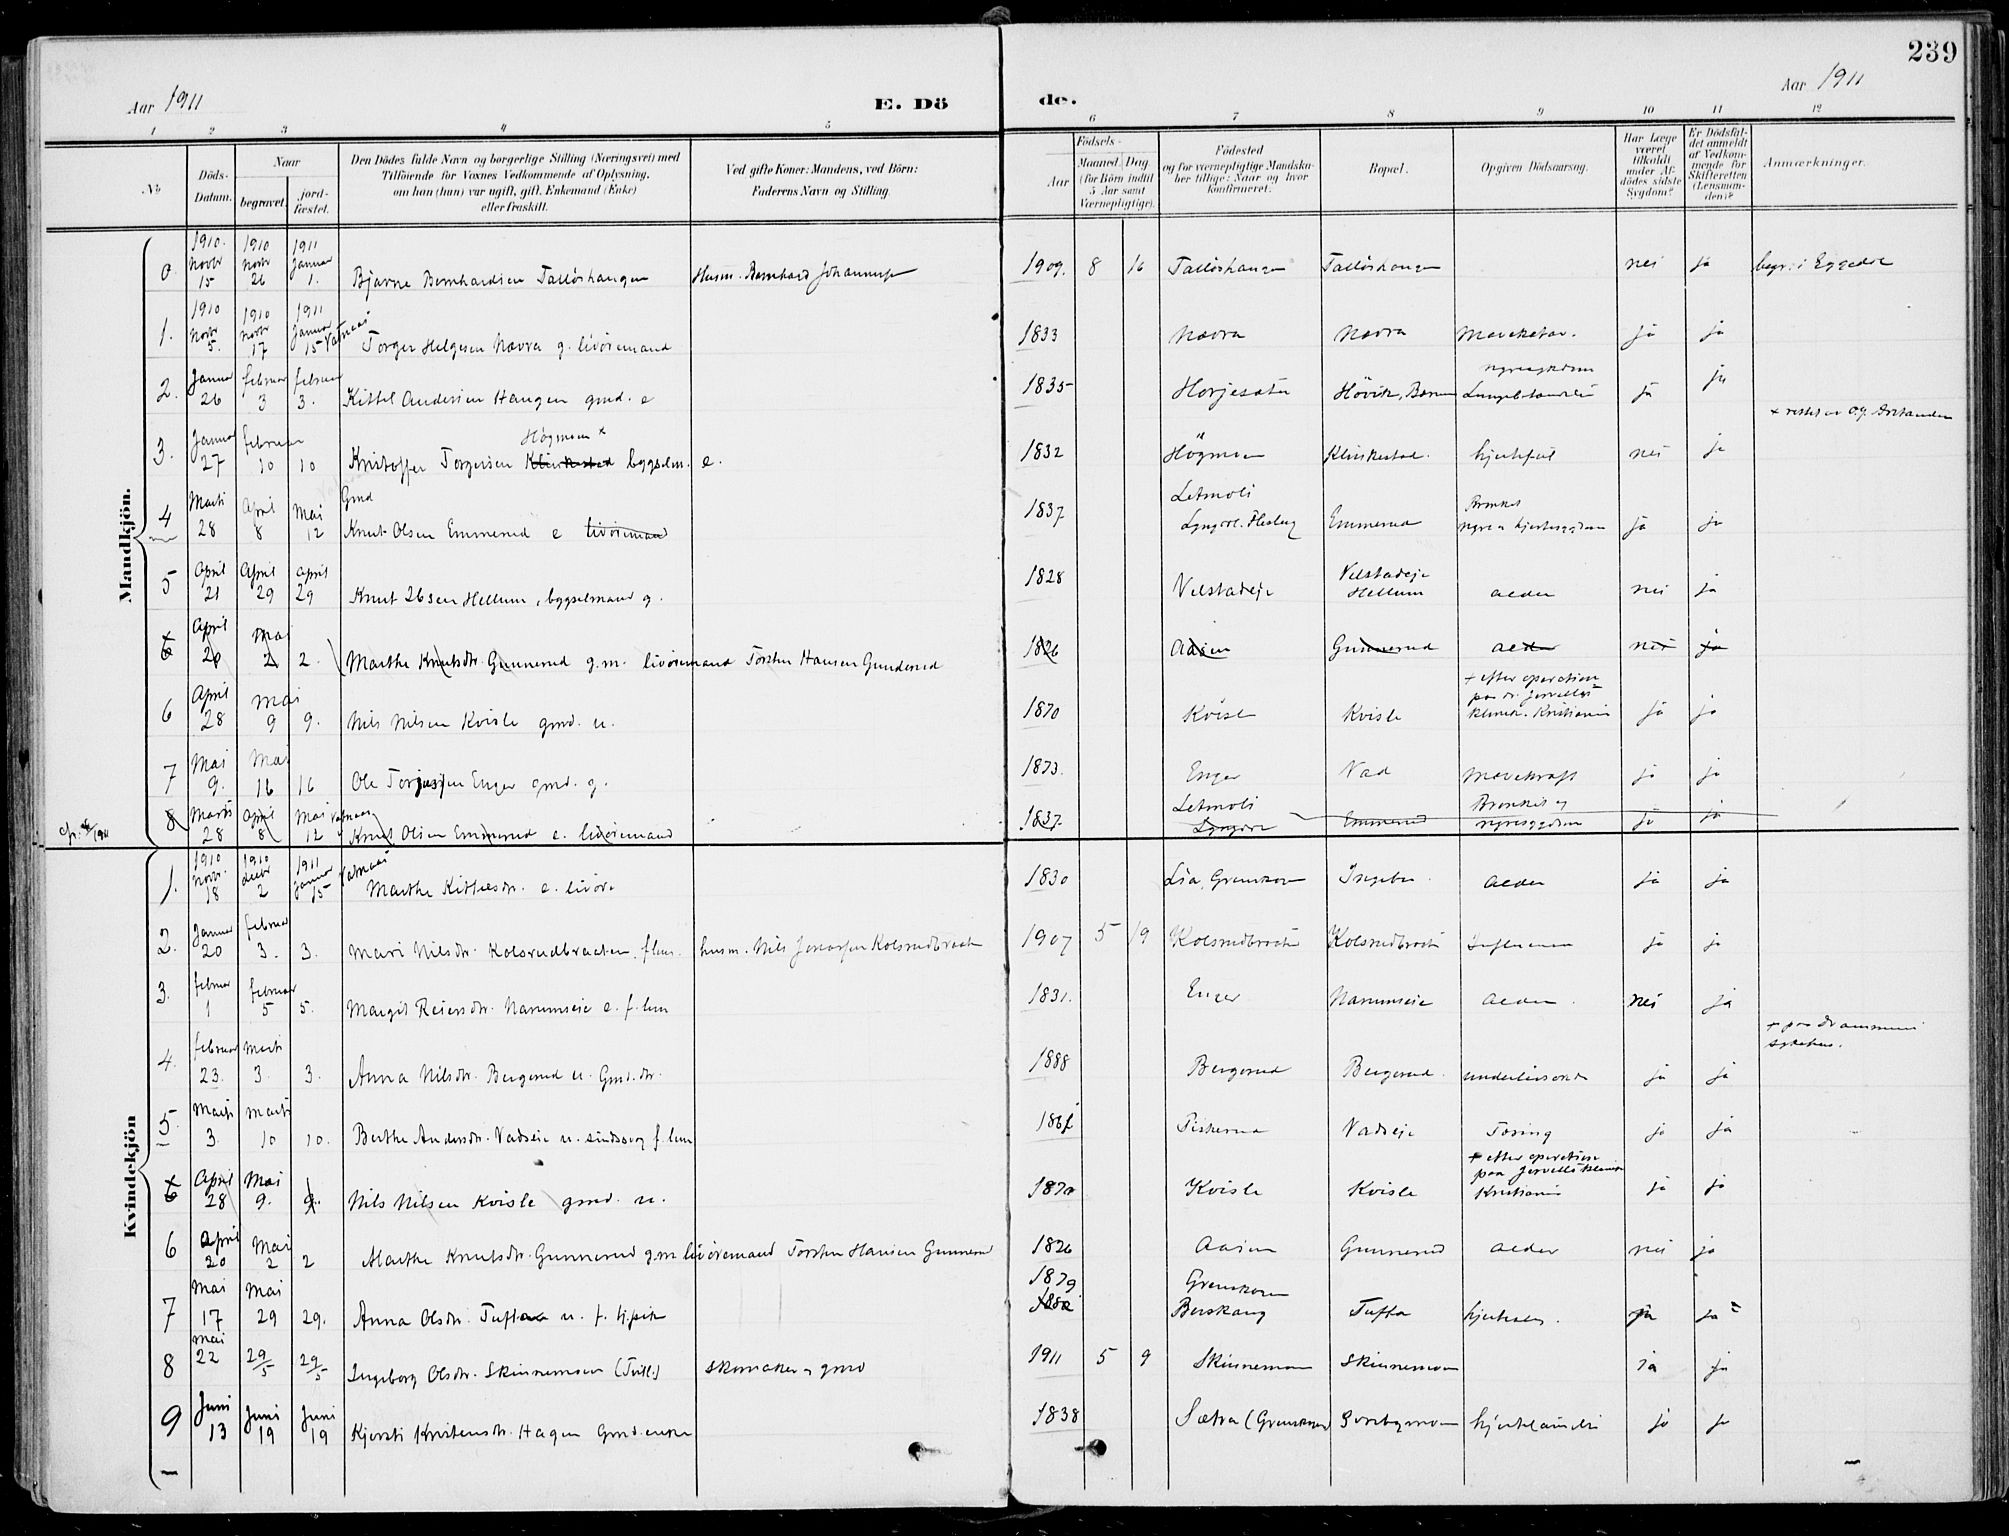 239
Aar 1911
E. Dö
de.
Aar 1911
1 2 3 4 5 6 7 8 9 10 11 12
No
Döds-Datum.
Naar
begravet.
jord-fæstet.
Den Dödes fulde Navn og borgerlige Stilling (Næringsvei) med
Tilföiende for Voxnes Vedkommende af Oplysning,
om han (hun) var ugift, gift, Enkemand (Enke)
eller fraskilt.
Ved gifte Koner: Mandens, ved Börn:
Faderens Navn og Stilling.
Födsels-
Aar
Maaned. Dag.
(for Börn indtil
5 Aar samt
Værnepligtige).
Födested
og for værnepligtige Mandska-
ber tillige: Naar og hvor
konfirmeret.
Bopæl.
Opgiven Dödsaarsag.
Har Læge
været
tilkaldt
under Af-
dödes sidste
Sygdom?
Er Dödsfal-
det anmeldt
af Vedkom-
mende for
Skifteretten
(Lensman-
den)?
Anmærkninger.
Mandkjön.
0. 1910. Novbr 15 1910 Novbr 26 1911 Januar 1. Bjarne Bernhardsen Tallöshaugen Husm. Bernhard Johannesen 1909. 8 16 Tallöshaugen Tallöshaugen nei ja begr. i Eggedal
1. 1910 Novbr 5. 1910 Novbr 17 1911 Januar 15 Vatnaas Torger Helgesen Nævra g. livöremand 1833 Nævra Nævra ja ja
2. Januar 26 Februar 3 Februar 3. Kittel Andersen Haugen gmd. e 1835 Horjesæter Hövik, Bærum ja ja
3. Januar 27 Februar 10 10 Kristoffer Torgersen Klinkestad Högmoen x bygselm. e. 1832 Högmoen Klinkestad hjertefeil nei ja
4 Marts 28 April 8 Mai 12 Gmd Knut Olsen Emmerud e livöremand 1837 Letmoli Lyngdal. Flesberg Emmerud Bronkit nyre & hjertesygdom ja ja
5 April 21 April 29 April 29 Knut Ibsen Hellum, bygselmand g. 1828 Velstadeje Velstadeje Hellum alder nei ja
6 April 20 Mai 2 2. Marthe Knutsdtr. Gunnerud g.m. livöremand Torsten Hansen Gunderud 1826 Aasen Gunnerud alder nei ja
6 April 28 Mai 9 9. Nils Nilsen Kvisle gmd. u. 1870 Kvisle Kvisle + efter operation paa dr. Jervells klinik. Kristiania ja ja
7 Mai 9. Mai 16 16 Ole Torjusen Enger gmd. g. 1873. Enger Vad Mavekræft ja ja
8 Marts 28 April 8 Mai 12 Vatnaas Knut Olsen Emmerud e. livöremand 1837. Letmoli Lyngdal Emmerud Bronkit og nyresygdom ja ja
Kvindekjön
1. 1910 Novbr. 18 1910 Decbr 2 1911 Januar 15 Vatnaas Marthe Kittelsdtr. e. livöre 1830 Lia, Grænskoven alder ja ja
2. Januar 20 Februar 3. 3. Mari Nilsdtr. Kolsrudbraaten, flem. husm. Nils Kolsrudbraaten 1907 5 19 Kolsrudbraaten Kolsrudbraaten Influensa ja ja
3. Februar 1 Februar 5 5. Margit Reiersdtr. Narumseie e. f. lem 1831. Enger Narumseie alder nei ja
4. Februar 23. Marts 3. 3. Anna Nilsdtr. Bergerud u. Gmd.dtr. 1888 Bergerud Bergerud underlivsonde ja ja + paa Drammens sykehus.
5. Marts 3. Marts 10 10. Berthe Andersdtr. Vadseie u. sindssvag f. lem Vadseje Tæring ja ja
6 April 28 Mai 9. 9. Nils Nilsen Kvisle gmd. u. 1870 Kvisle Kvisle + efter operation paa Jervells klinik Kristiania ja ja
6 April 20 Mai 2 2 Marthe Knutsdtr. Gunnerud g.m. livöremand Torsten Hansen Gunnerud 1826 Aasen Gunnerud alder nei ja
7 Mai 17 Mai 29 29. Anna Olsdtr. Tufta u. f. 1879 Grænskoven Berskaug Tufta ja ja
8 Mai 22 29/5 29/5 Ingeborg Olsdtr. Skinnemoen (Tvill.) skomaker & gmd 1911 5 9 Skinnemoen Skinnemoen ja ja
9 Juni 13 Juni 19 Juni 19 Kjersti Kristensdtr. Hagen Gmd.enke 1838 Sætra (Grænskoven) ja ja